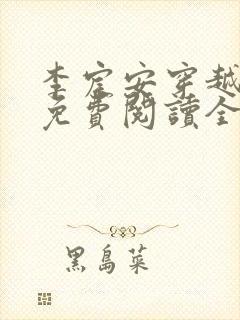 李宦安穿越
免費閱讀全
黑島菜